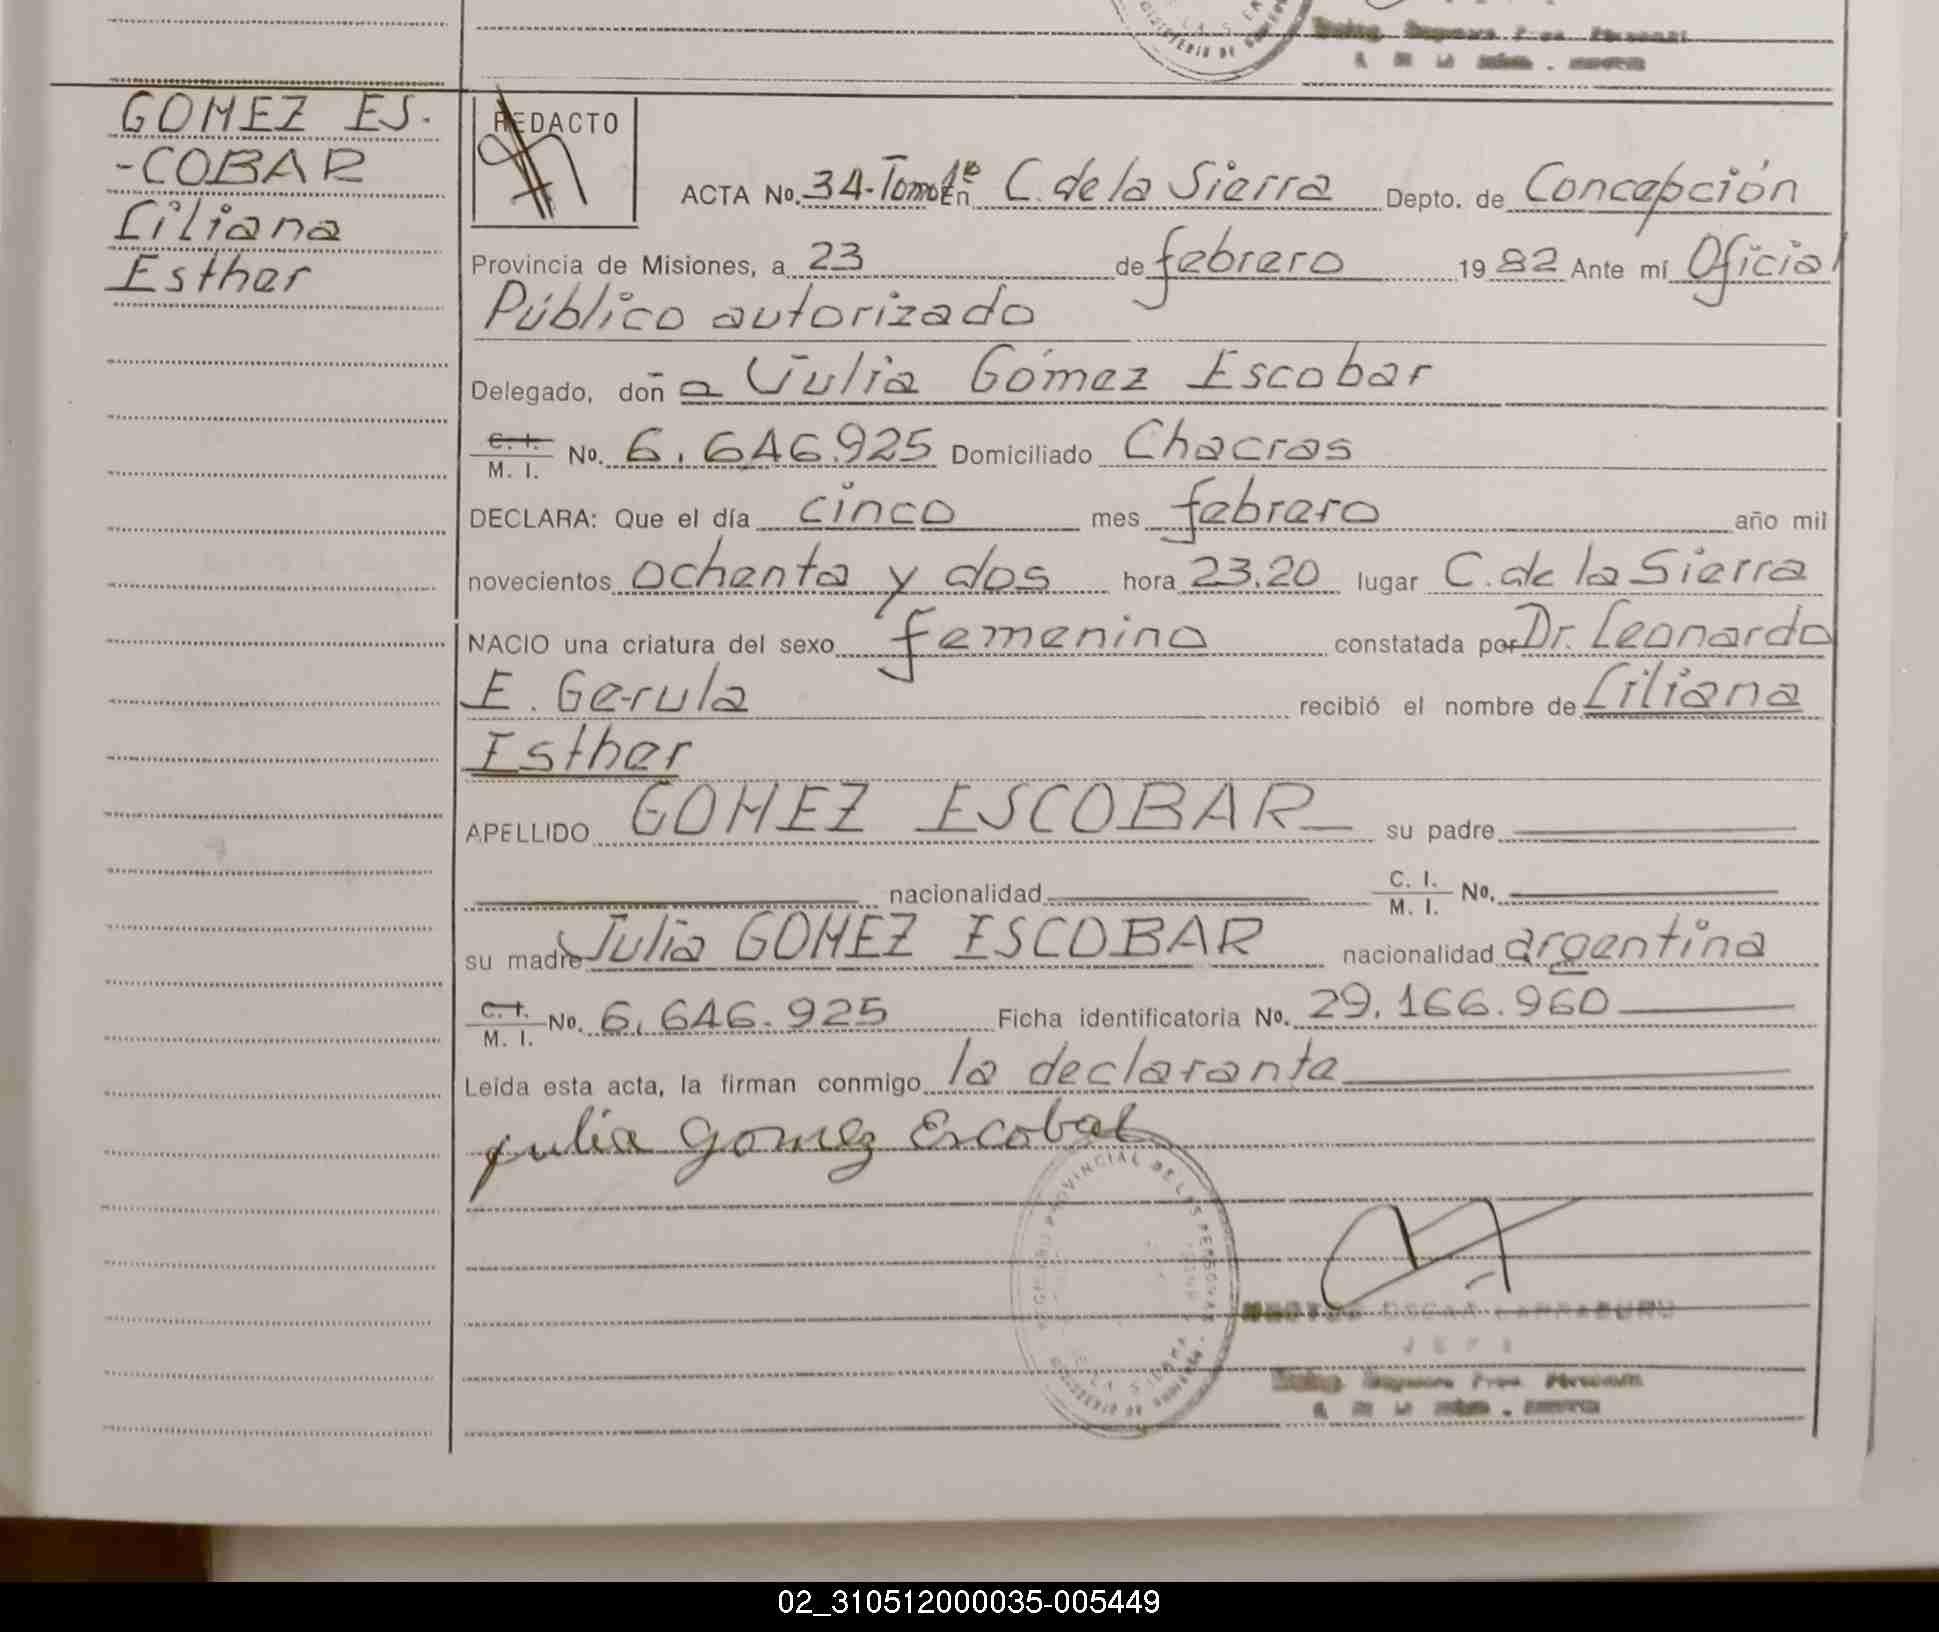 GOMEZ ES.
-COBAR
Liliana
Esther
REDACTO
ACTA No. 34-Tomo 1º En C. de la Sierra Depto. de Concepción
Provincia de Misiones, a 23 de febrero 1982 Ante mí Oficial
Público autorizado
Delegado, doña Julia Gómez Escobar
C. I. M. I. No. 6.646.925 Domiciliado Chacras
DECLARA: Que el día cinco mes febrero año mil
novecientos ochenta y dos hora 23.20 lugar C. de la Sierra
NACIO una criatura del sexo femenino constatada por Dr. Leonardo
E. Gerula recibió el nombre de Liliana
Esther
APELLIDO GOMEZ ESCOBAR su padre
nacionalidad C. I. M. I. No.
su madre Julia GOMEZ ESCOBAR nacionalidad argentina
C. I. M. I. No. 6.646.925 Ficha identificatoria No. 29.166.960
Leída esta acta, la firman conmigo la declarante
Julia Gomez Escobar
PROVINCIAL DE LAS PERSONAS
JEFE
02_310512000035-005449